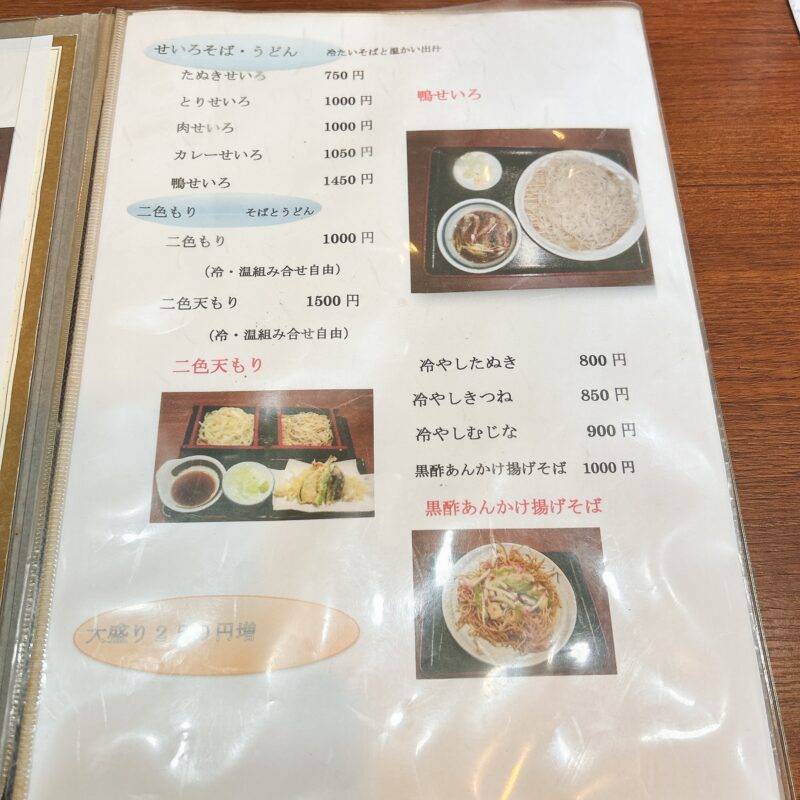 せいろそば・うどん 冷たいそばと温かい出汁
たぬきせいろ 750 円
とりせいろ 1000 円
肉せいろ 1000 円
カレーせいろ 1050 円
鴨せいろ 1450 円
二色もり そばとうどん
二色もり 1000 円
（冷・温組み合せ自由）
二色天もり 1500 円
（冷・温組み合せ自由）
二色天もり
大盛り２５０円増
鴨せいろ
冷やしたぬき 800 円
冷やしきつね 850 円
冷やしむじな 900 円
黒酢あんかけ揚げそば 1000 円
黒酢あんかけ揚げそば